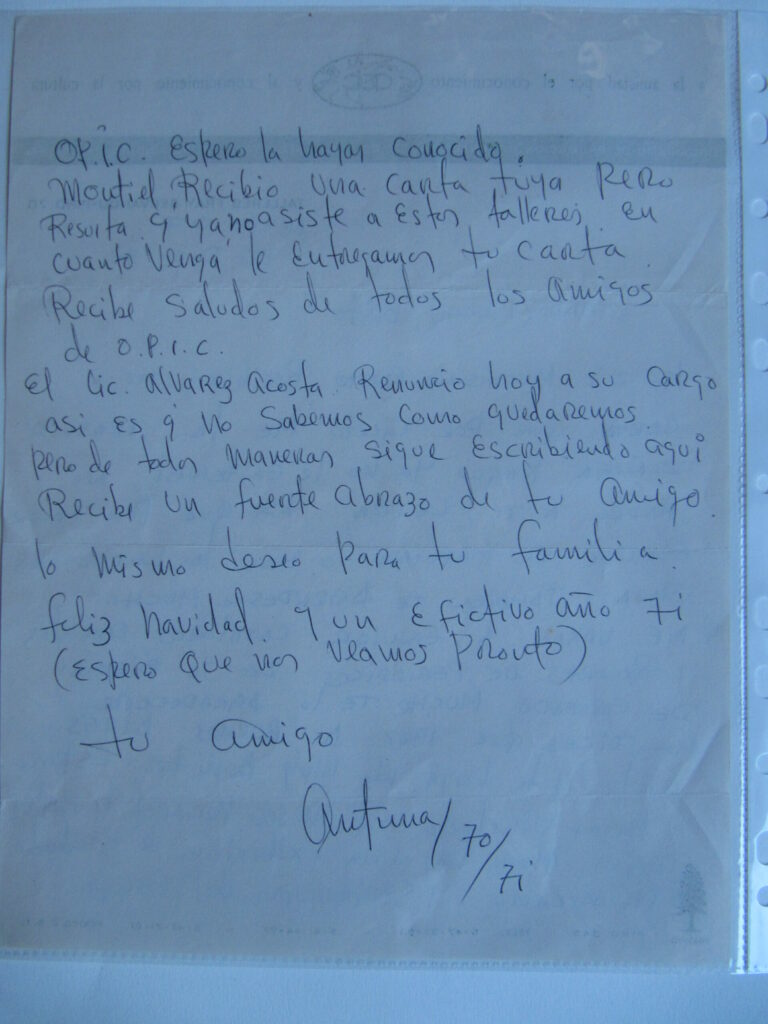 O.P.I.C. Espero la hayas conocido.
Montiel, Recibio una carta tuya pero
Resulta q' ya no asiste a estos talleres, en
cuanto venga le entregamos tu carta.
Recibe saludos de todos los amigos
de O.P.I.C.
El Lic. Alvarez Acosta Renuncio hoy a su cargo
asi es q' no sabemos como quedaremos.
pero de todas maneras sigue escribiendo aqui
Recibe un fuerte abrazo de tu amigo.
lo mismo deseo para tu familia.
feliz navidad y un efictivo año 71
(espero que nos veamos pronto)
tu amigo
Antuna/70/71